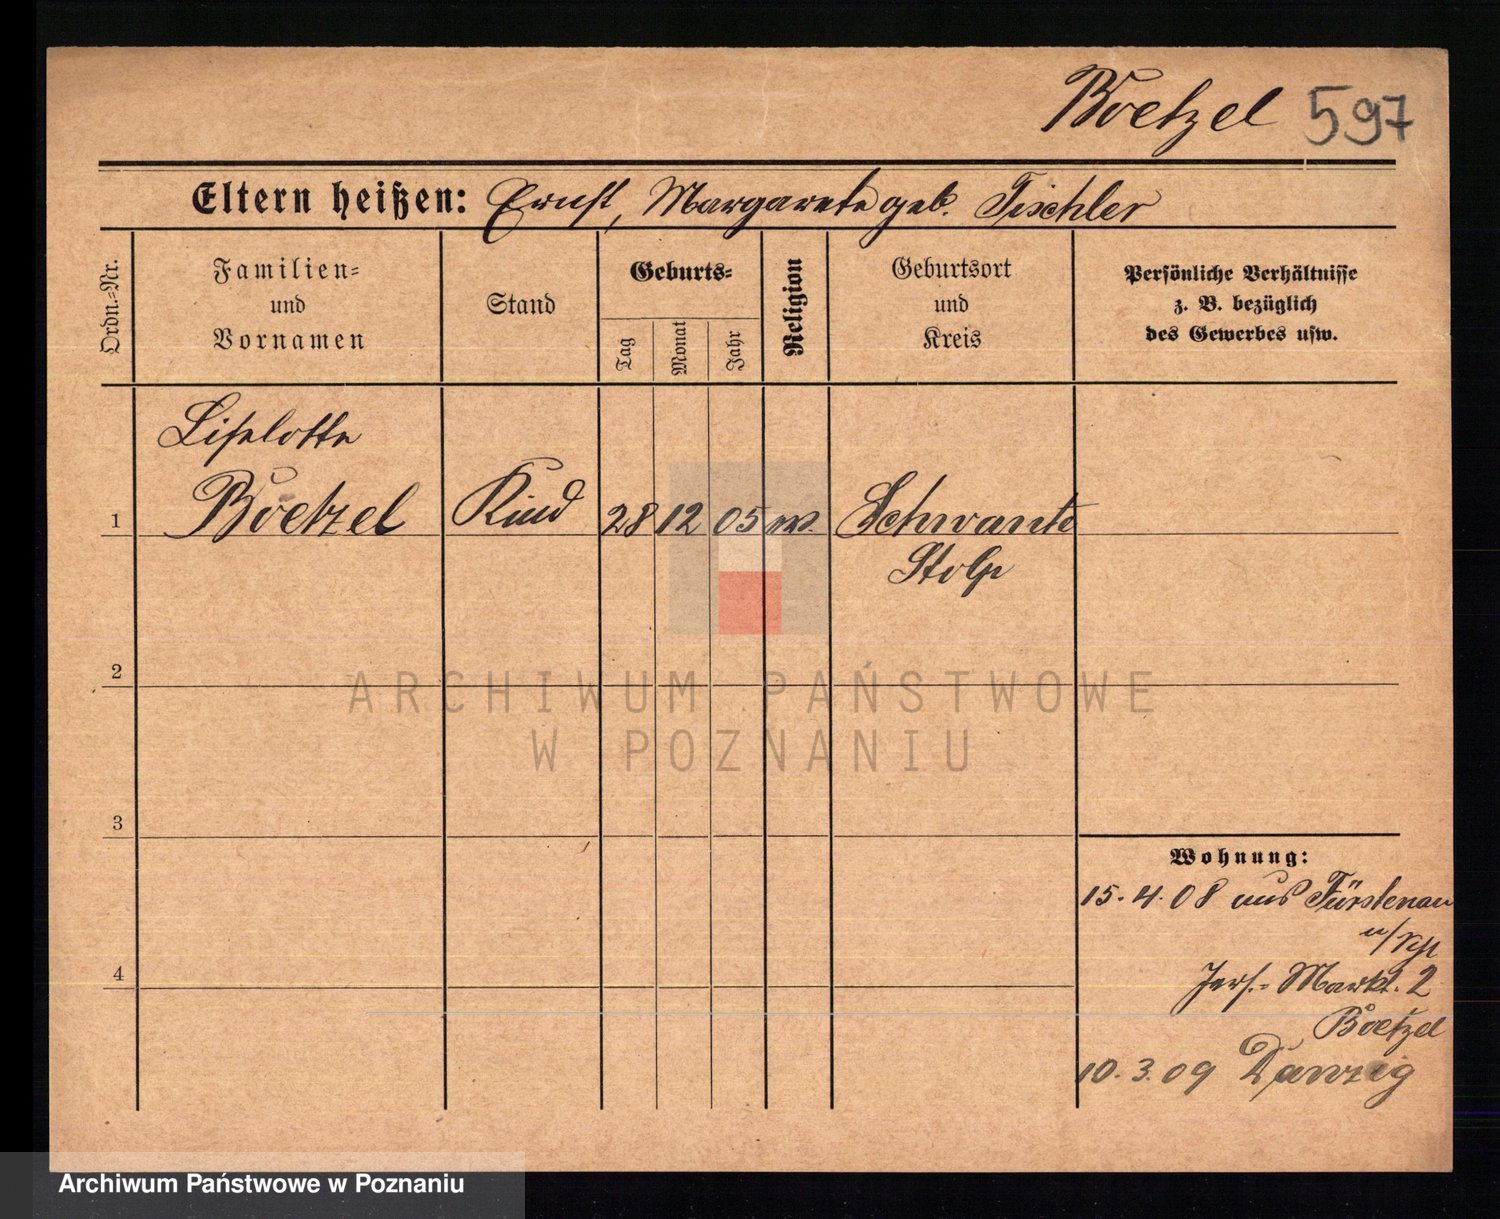 Boetzel 597
Eltern heißen: Ernst, Margarete geb. Tischler
Ordn.-Nr.
Familien-
und
Vornamen
Stand
Geburts-
Tag
Monat
Jahr
Religion
Geburtsort
und
Kreis
Persönliche Verhältnisse
z. B. bezüglich
des Gewerbes usw.
Liselotte
1 Boetzel Kind 28 12 05 Schwante
Stolp
2
3
4
Wohnung:
15.4.08 aus Fürstenau
Jers.- Markt. 2
Boetzel
10.3.09 Danzig
ARCHIWUM PAŃSTWOWE
W POZNANIU
Archiwum Państwowe w Poznaniu